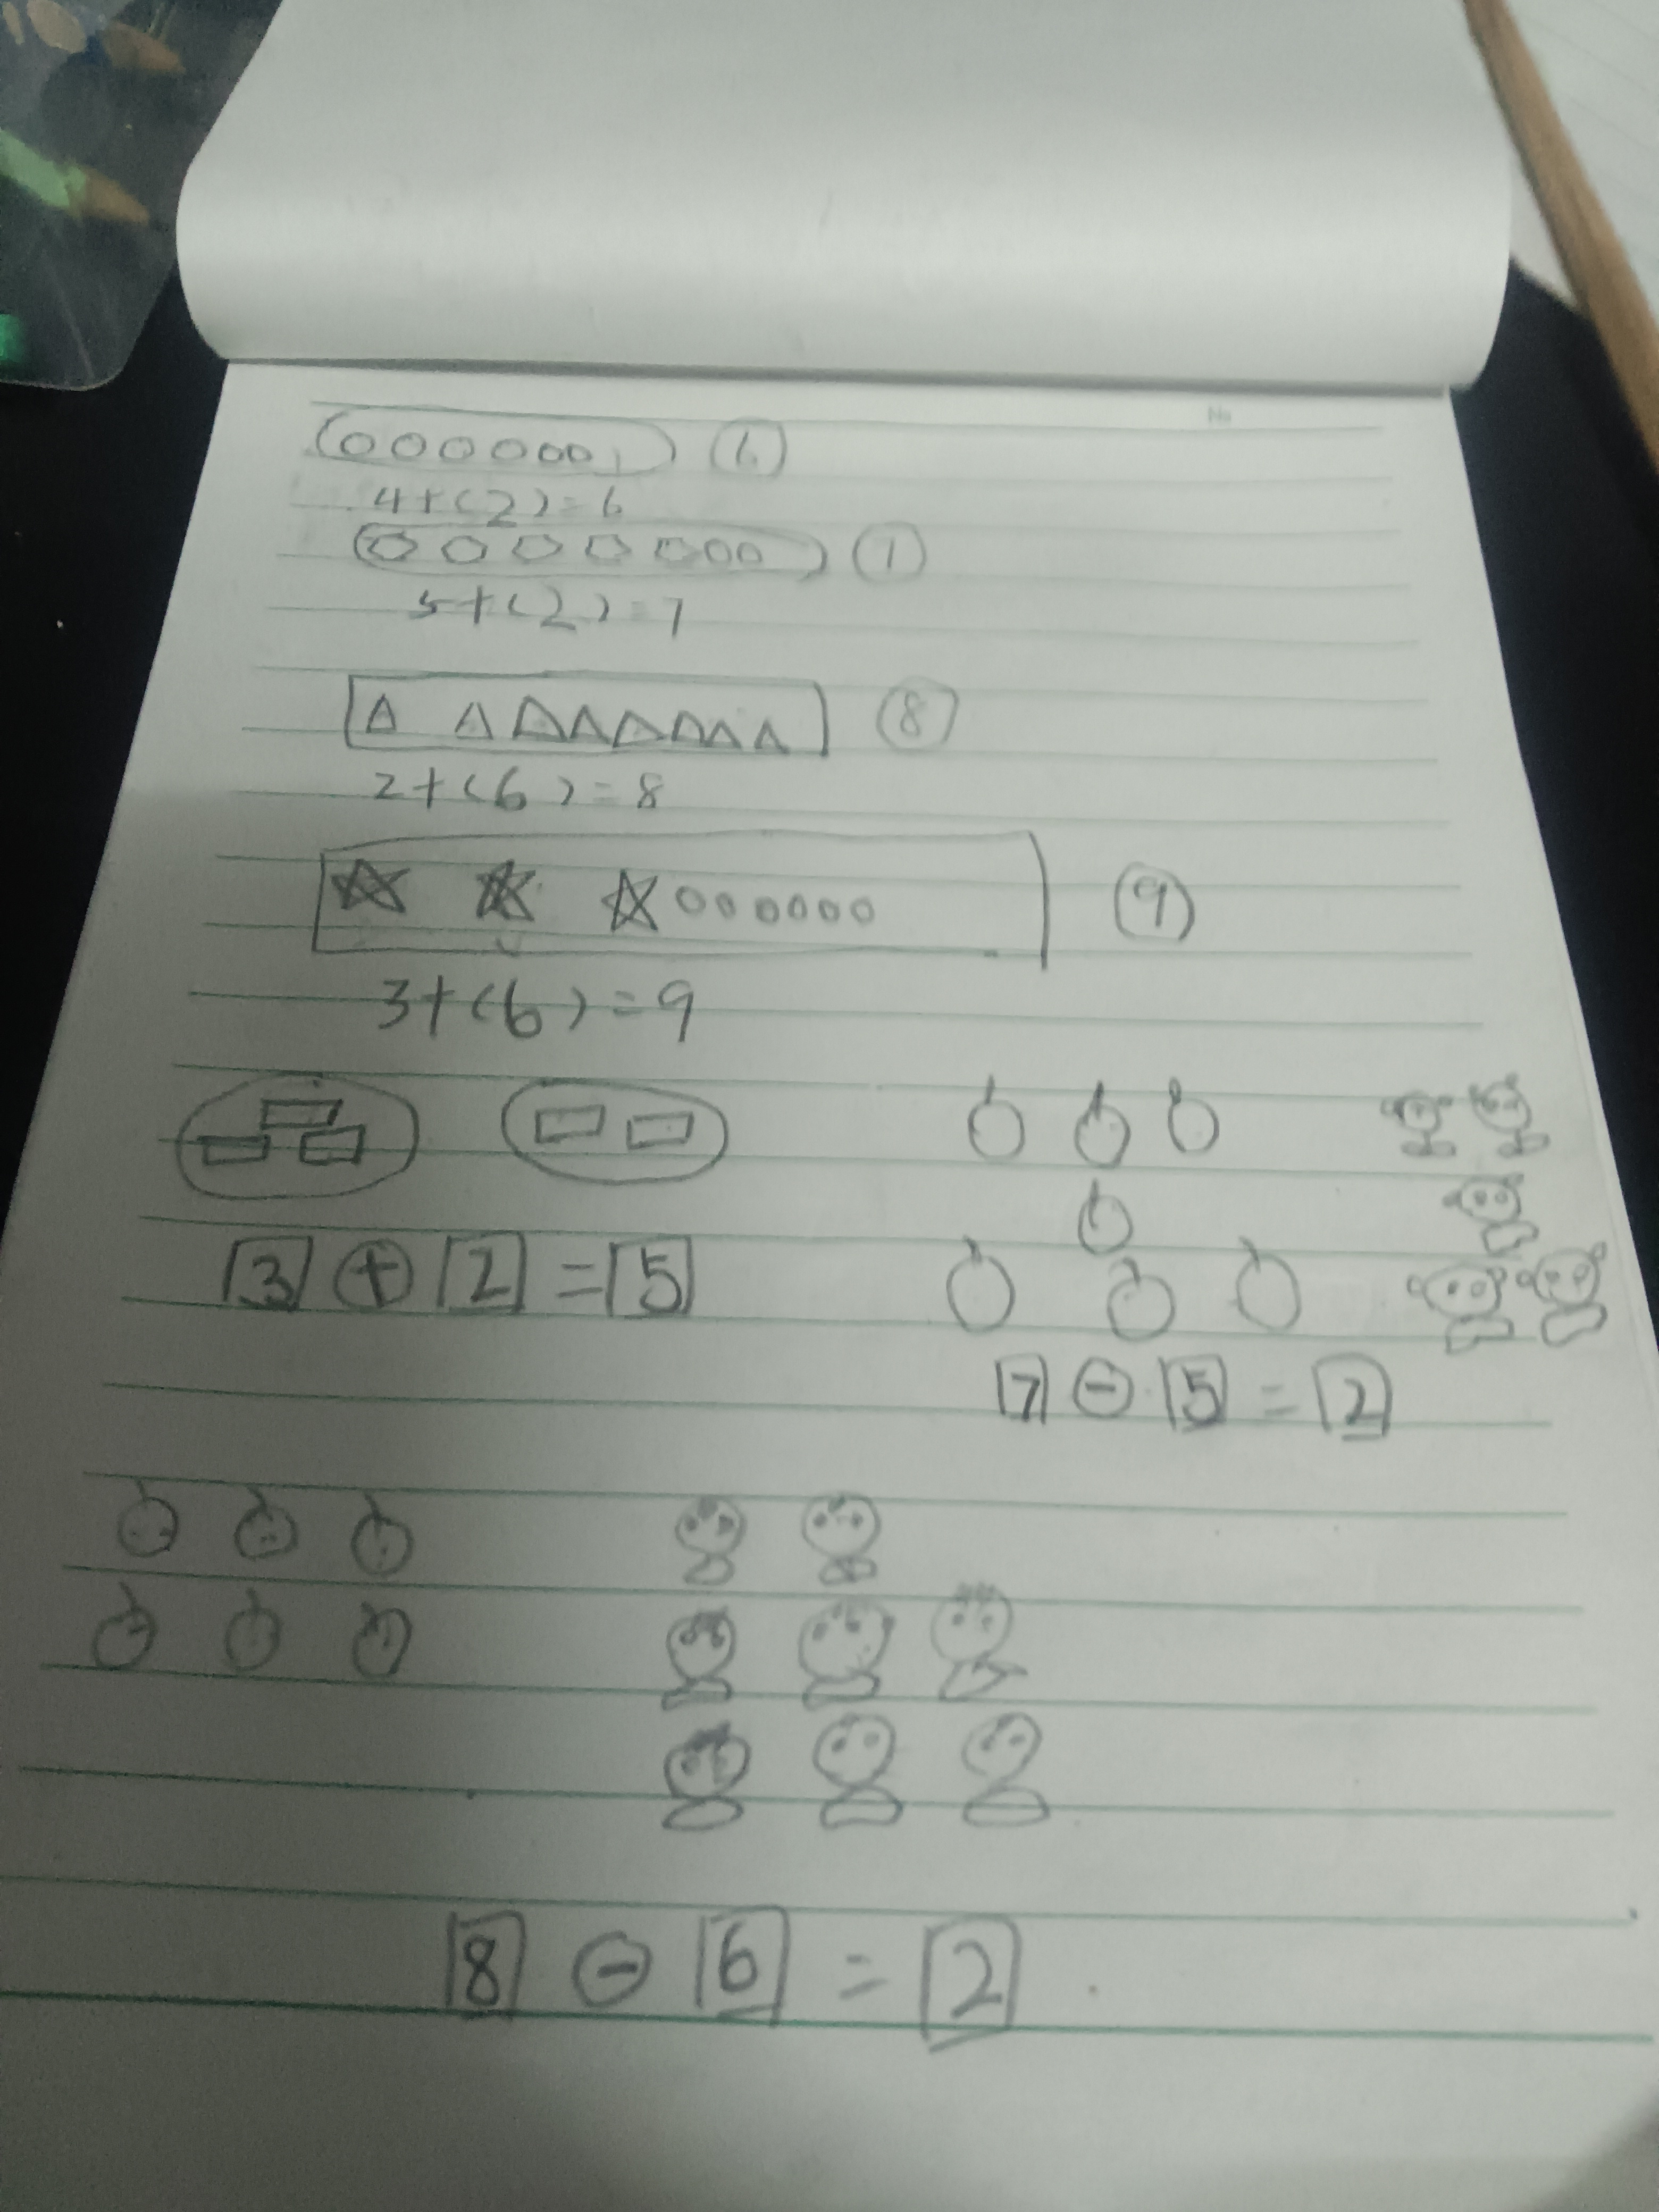 No
6
4+(2)=6
7
5+(2)=7
8
2+(6)=8
9
3+(6)=9
3+2=5
7-5=2
8-6=2